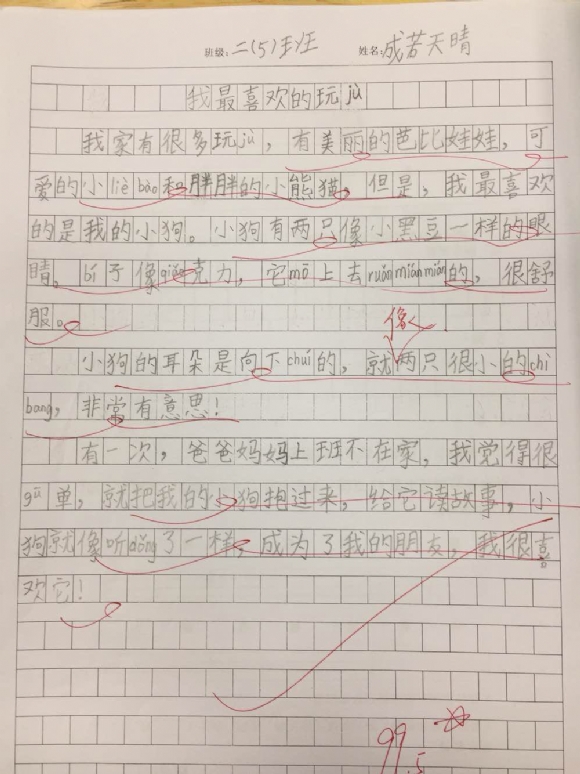 班级：二(5)班 姓名：成若天晴
我最喜欢的玩jù
我家有很多玩jù，有美丽的芭比娃娃，可
爱的小liè bào和胖胖的小熊猫。但是，我最喜欢
的是我的小狗。小狗有两只像小黑豆一样的眼
睛。bí子像qiǎo克力，它mō上去ruǎnmiánmián的，很舒
服。
像
小狗的耳朵是向下chuí的，就两只很小的chì
bang，非常有意思！
有一次，爸爸妈妈上班不在家，我觉得很
gū单，就把我的小狗抱过来，给它读故事，小
狗就像听dǒng了一样，成为了我的朋友，我很喜
欢它！
99.5